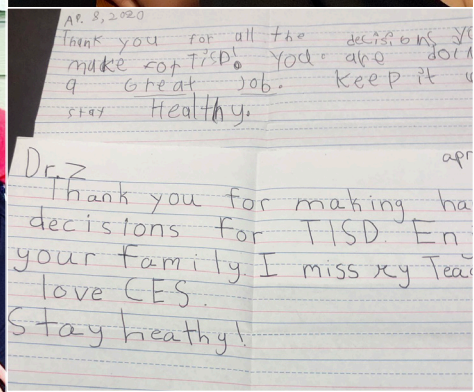 Ap. 8, 2020
Thank you for all the decisions yo
make for TISD! You are doin
a Great Job. Keep it u
stay Healthy.
apr
Dr. Z
Thank you for making ha
decisions for TISD. En
your family. I miss my Teac
love CES.
Stay heathy!